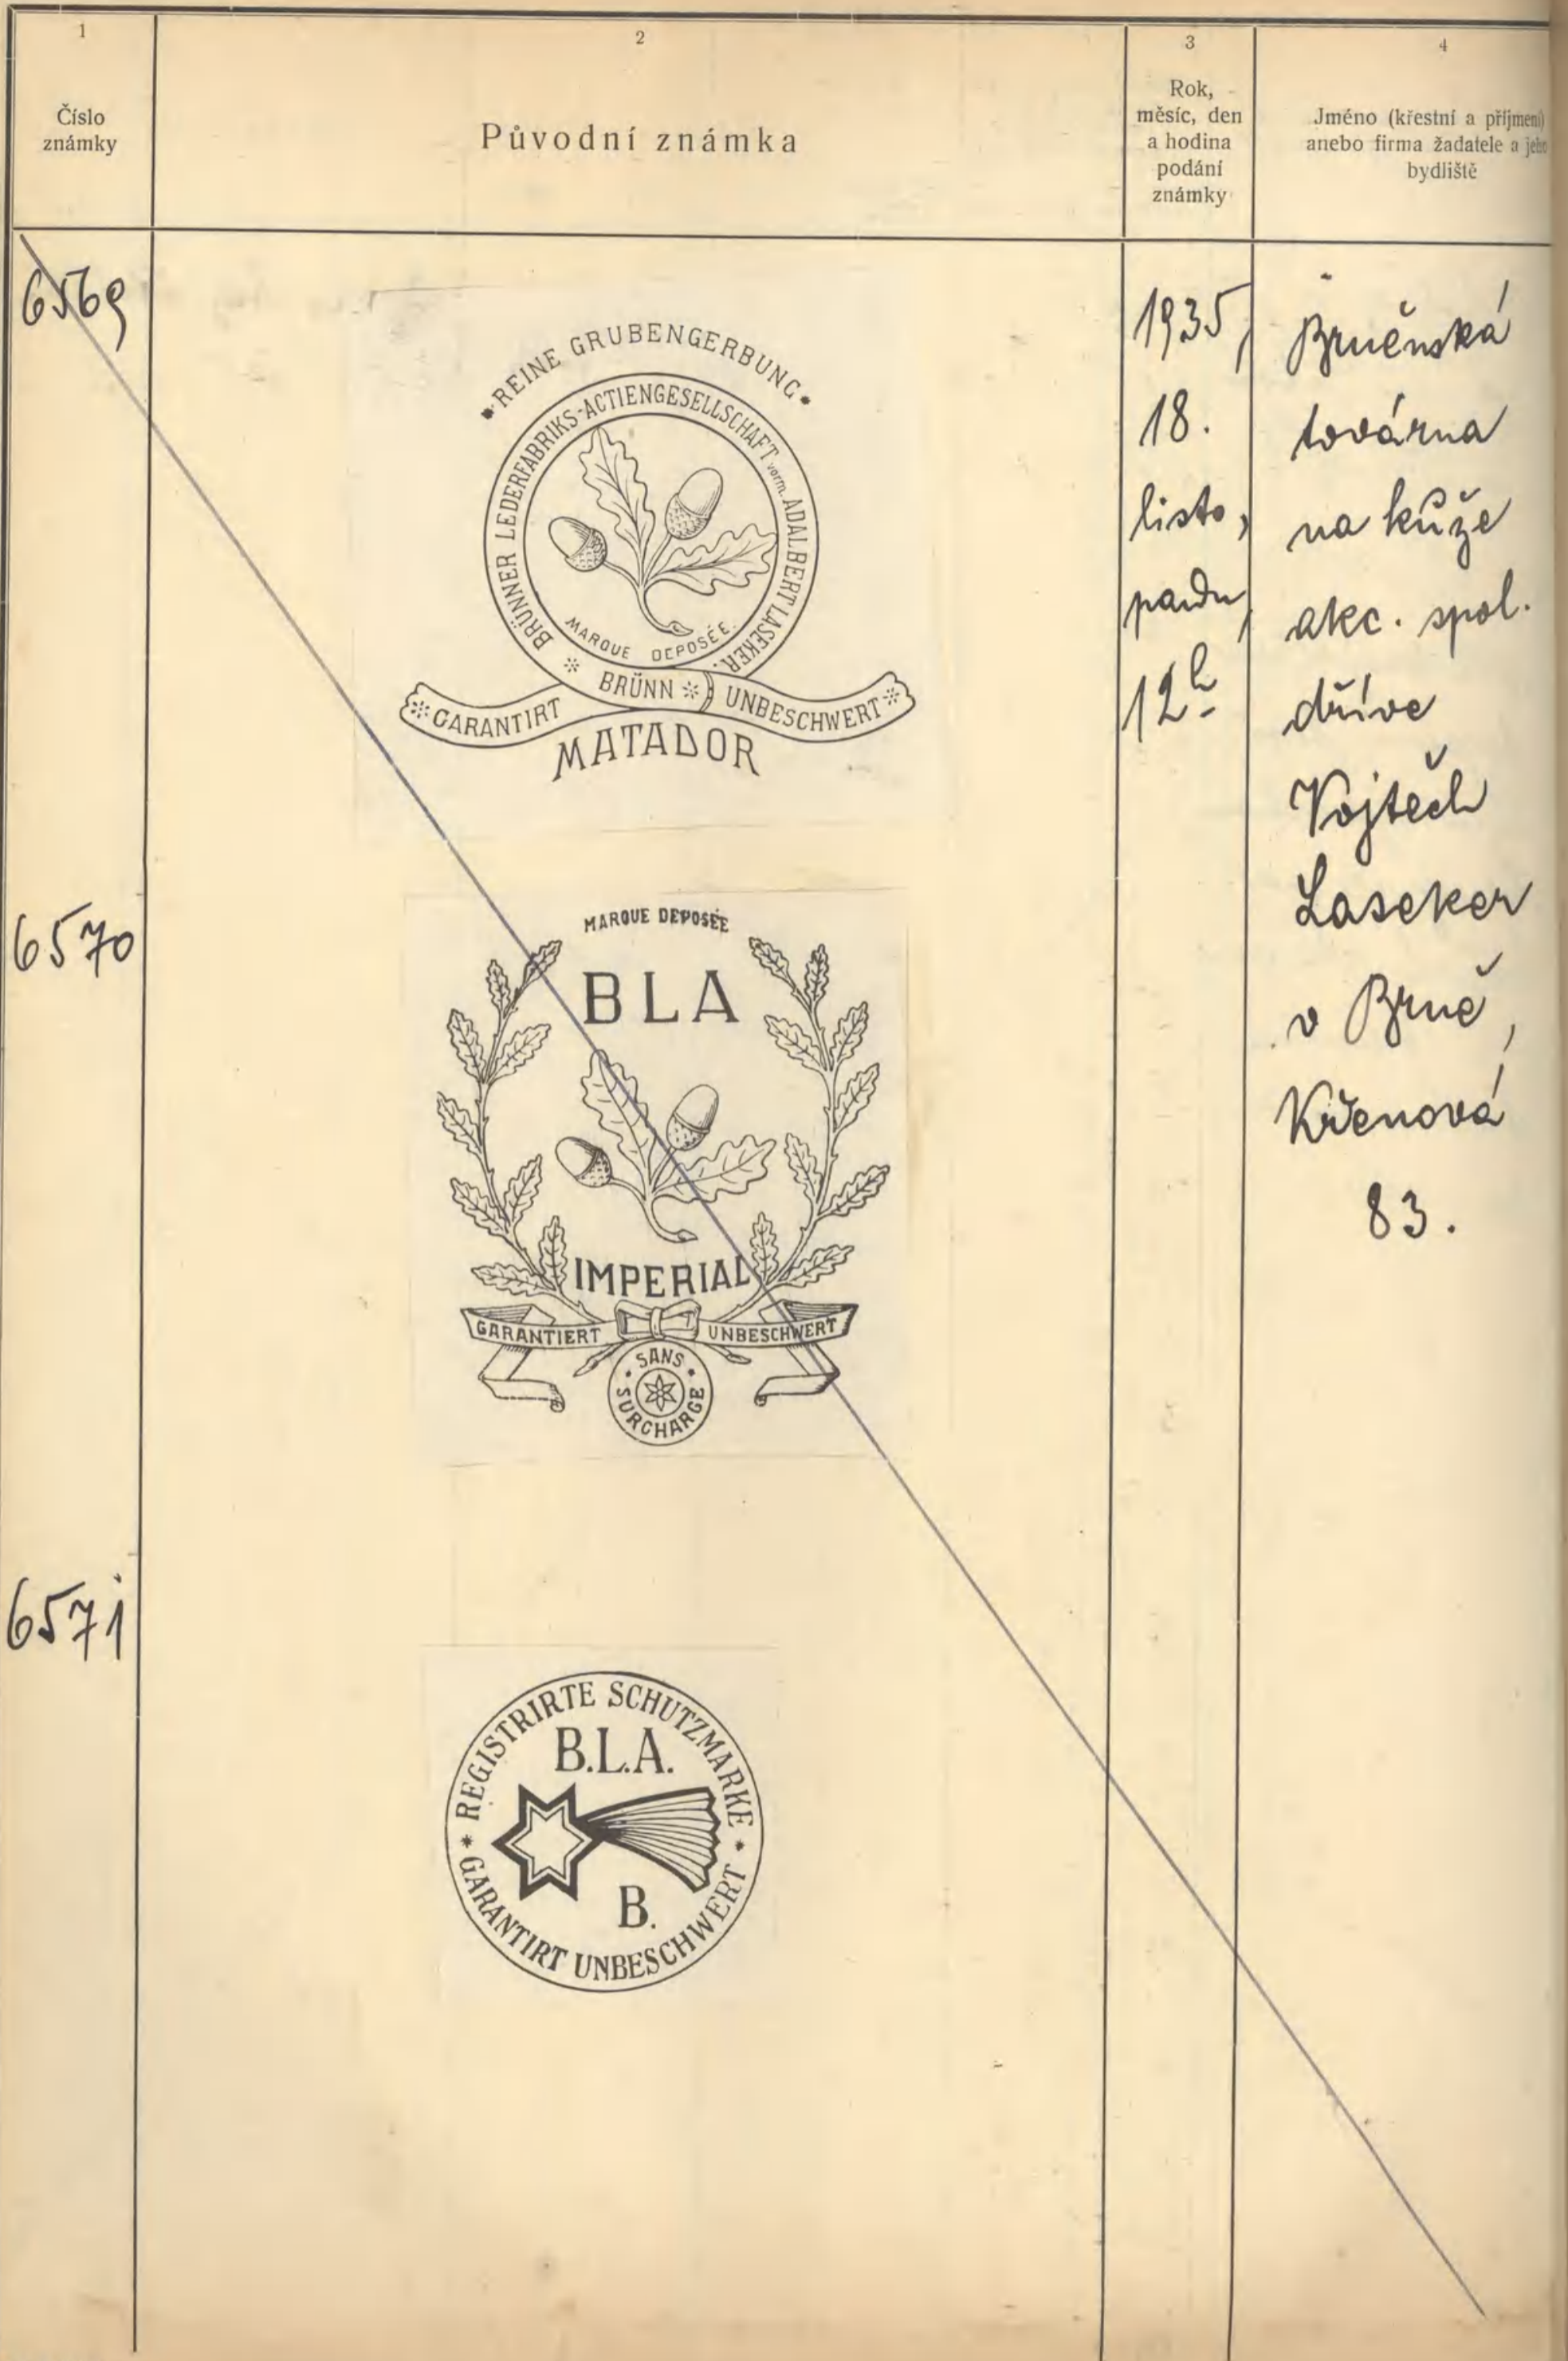 1
2
3
4
Číslo
známky
Původní známka
Rok,
měsíc, den
a hodina
podání
známky
Jméno (křestní a příjmení)
anebo firma žadatele a jeho
bydliště
6569
REINE GRUBENGERBUNG
BRÜNNER LEDERFABRIKS-ACTIENGESELLSCHAFT vorm. ADALBERT LASEKER.
MARQUE DEPOSÉE.
BRÜNN
GARANTIRT
UNBESCHWERT
MATADOR
1935,
18.
listo,
padu,
12h
Brněnská
továrna
na kůže
akc. spol.
dříve
Vojtěch
Laseker
v Brně,
Křenová
83.
6570
MARQUE DEPOSÉE
BLA
IMPERIAL
GARANTIERT UNBESCHWERT
SANS
SURCHARGE
6571
REGISTRIRTE SCHUTZMARKE
B.L.A.
B.
GARANTIRT UNBESCHWERT